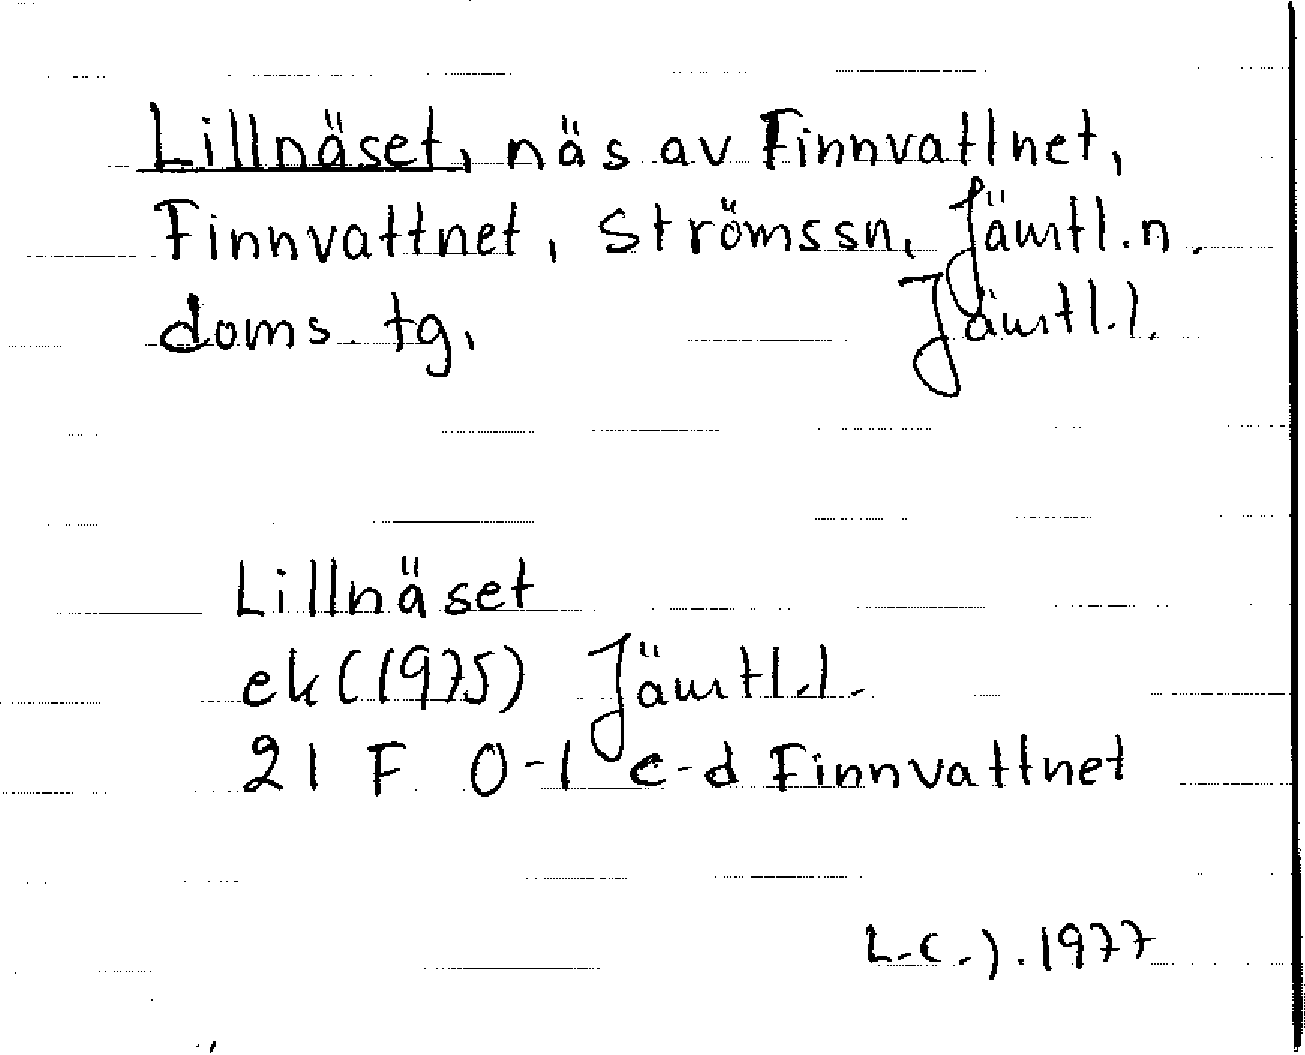 Lillnäset, näs av Finnvattnet,
Finnvattnet, Strömssn, Jämtl.n.
doms.tg, Jämtl.l.
Lillnäset
ek (1975) Jämtl.l.
21 F 0-1 c-d Finnvattnet
L.C.J. 1977